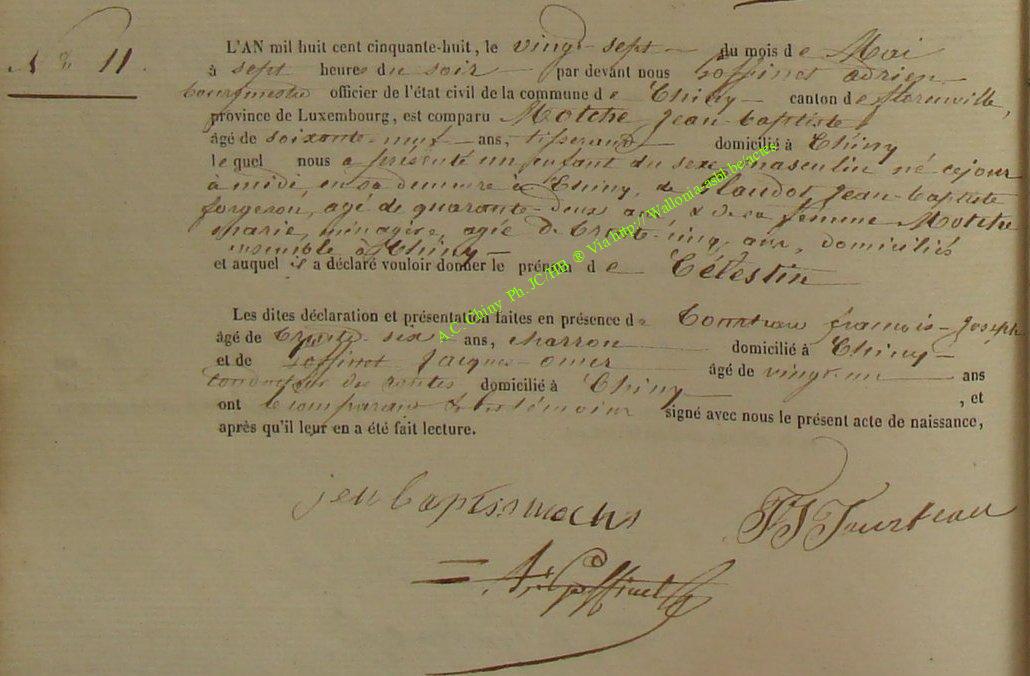 N° 11.
L'AN mil huit cent cinquante-huit, le vingt-sept du mois de Mai
à sept heures du soir par devant nous Goffinet adrien
bourgmestre officier de l'état civil de la commune de Chiny canton de florenville,
province de Luxembourg, est comparu Motche jean-baptiste
âgé de soixante-neuf ans, tisserand domicilié à Chiny
lequel nous a présenté un enfant du sexe masculin né cejour
à midi, en sa demeure à Chiny, de Claudot, jean-baptiste
forgeron, agé de quarante-deux ans & de sa femme Motche
marie, ménagère, agée de trente-cinq ans, domiciliés
ensemble à Chiny
et auquel il a déclaré vouloir donner le prénom de Célestin
Les dites déclaration et présentation faites en présence de Tourteau francois-joseph
âgé de trente-six ans, charron domicilié à Chiny
et de Goffinet jacques-omer âgé de vingt-un ans
conducteur des routes domicilié à Chiny , et
ont le comparant & les témoins signé avec nous le présent acte de naissance,
après qu'il leur en a été fait lecture.
jen baptis moche
FJ Tourteau
Goffinet
A.C. Chiny Ph. JC/HB ® Via http://Wallonia-asbl.be/actes